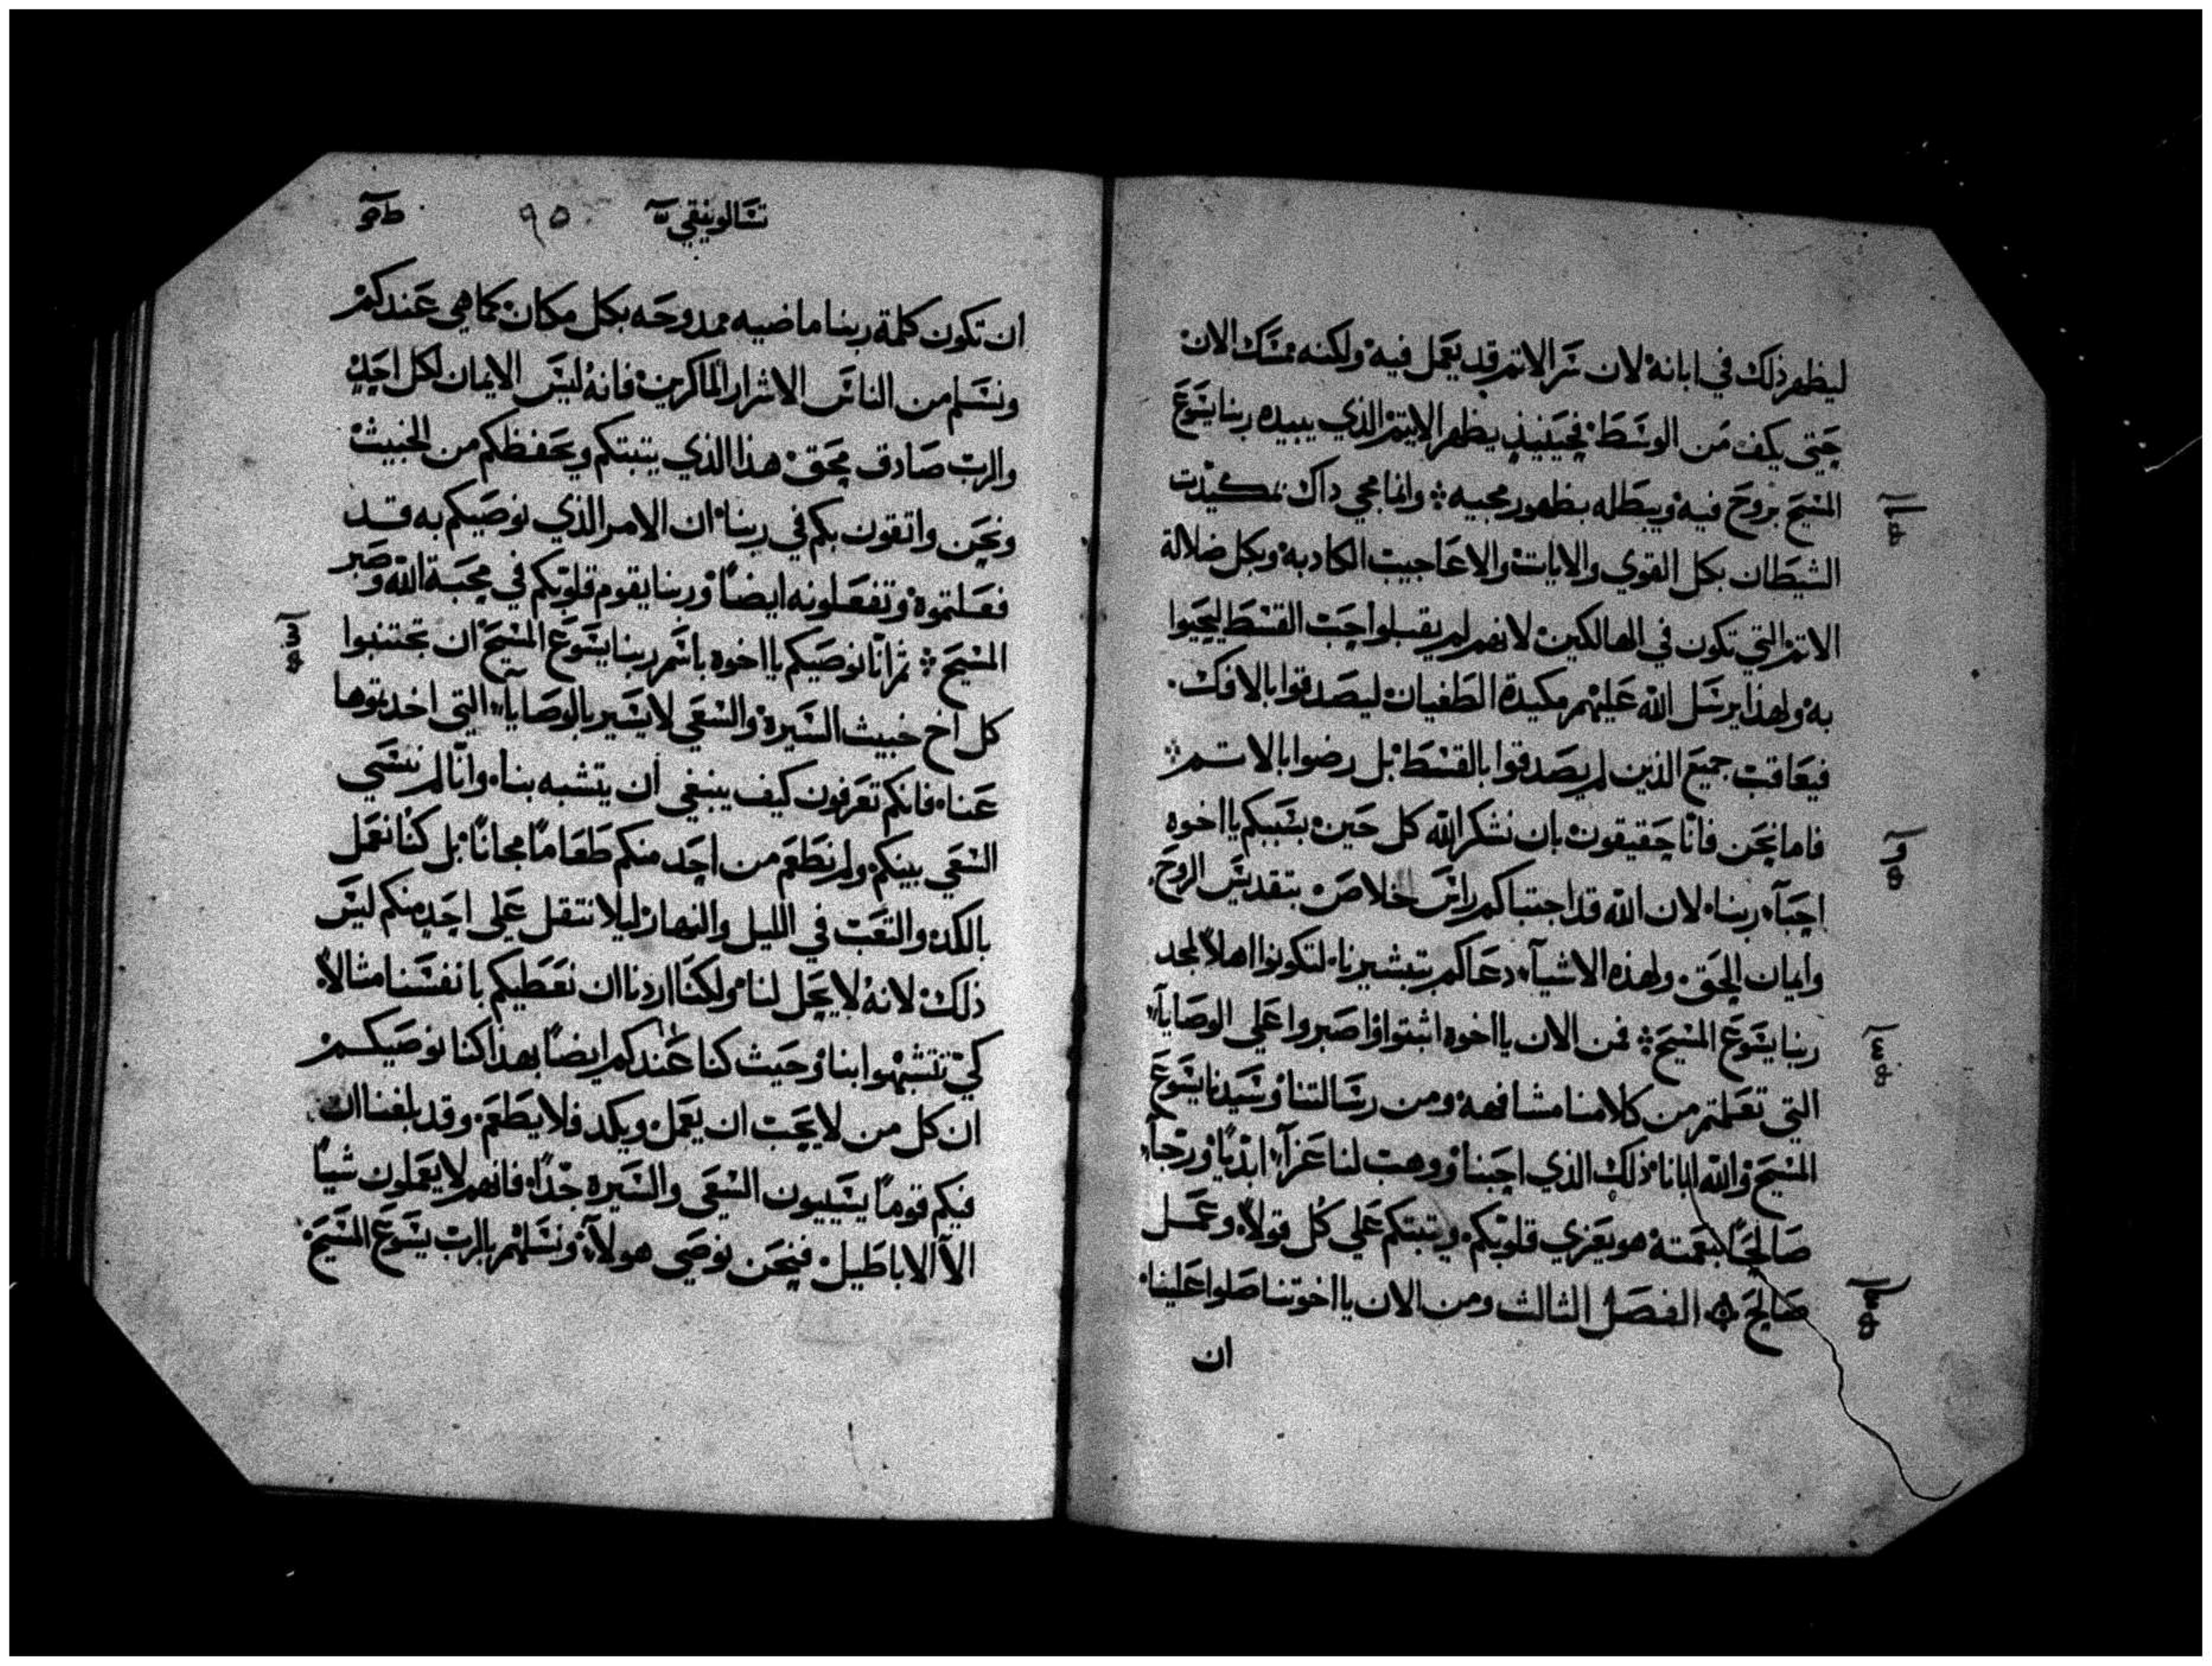 ليظهر ذلك في ابانة لان سر الاثم قد يعمل فيه ولكنه ممسك الان
حتى يكف من الوسط فحينيذ يظهر الاثيم الذي يبيده ربنا يسوع
المسيح بروح فيه ويبطله بظهور مجييه وانما مجي داك بمكيدت
الشيطان بكل القوي والايات والاعاجيب الكادبه وبكل ضلالة
الاثم التي تكون في الهالكين لانهم لم يقبلوا حب القسط ليحيوا
به ولهذا يرسل الله عليهم مكيدة الطغيان ليصدقوا بالافك
فيعاقب جميع الذين لم يصدقوا بالقسط بل رضوا بالاثم
فاما نحن فانا حقيقون بان نشكر الله كل حين بسببكم يااخوه
احبآء ربنا لان الله قد اجتباكم راس خلاص بتقديس الروح
وايمان الحق ولهذه الاشيآء دعاكم بتبشيرنا لتكونوا اهلاً لمجد
ربنا يسوع المسيح فمن الان يااخوه اثبتوا واصبروا علي الوصايآء
التي تعلمتم من كلامنا مشافهه ومن رسالتنا وسيدنا يسوع
المسيح والله ابانا ذلك الذي احبنا ووهب لنا عزآء ابديًا ورجآء
صالحًا بنعمته هو يعزي قلوبكم ويثبتكم علي كل قولاً وعمل
صالح الفصل الثالث ومن الان يااخوتنا صلوا علينا
ان
تسالونيقي
٩٥
ان تكون كلمة ربنا ماضيه ممدوحه بكل مكان كما هي عندكم
ونسلم من الناس الاشرار الماكرين فانه ليس الايمان لكل احد
والرب صادق محق هذا الذي يثبتكم ويحفظكم من الخبيث
ونحن واثقون بكم في ربنا ان الامر الذي نوصيكم به قد
فعلتموه وتفعلونه ايضًا وربنا يقوم قلوبكم في محبة الله وصبر
المسيح ثم انّا نوصيكم يااخوه باسم ربنا يسوع المسيح ان تجتنبوا
كل اخ خبيث السيرة والسعي لا يسير بالوصايآء التي اخدتوها
عنا فانكم تعرفون كيف ينبغي ان يتشبه بنا وانّا لم نسي
السعي بينكم ولم نطعم من احد منكم طعامًا مجانًا بل كنا نعمل
بالكد والتعب في الليل والنهار ليلا نثقل علي احد منكم ليس
ذلك لانه لا يحل لنا ولكنا اردنا ان نعطيكم بانفسنا مثالاً
كي تتشبهوا بنا وحيث كنا عندكم ايضًا بهذا كنا نوصيكم
ان كل من لا يحب ان يعمل ويكد فلا يطعم وقد بلغنا ان
فيكم قومًا يسييون السعي والسيره جدًا فانهم لا يعملون شيًا
الآ الاباطيل فنحن نوصي هولآء ونسلهم بالرب يسوع المسيح